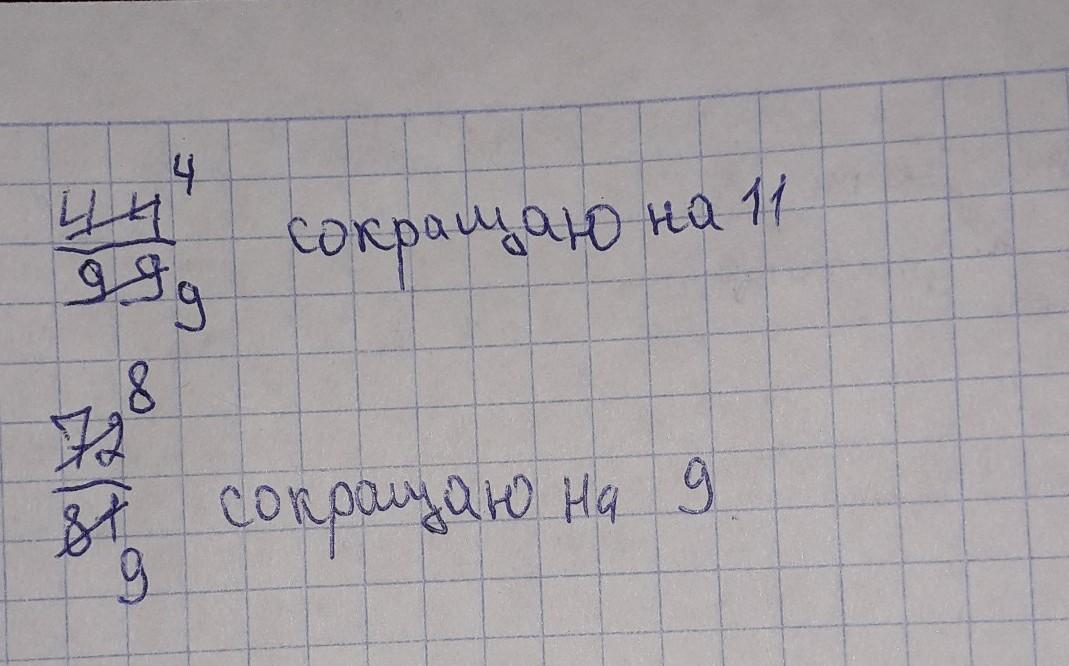 4
44 сокращаю на 11
99
9
8
72
81 сокращаю на 9
9